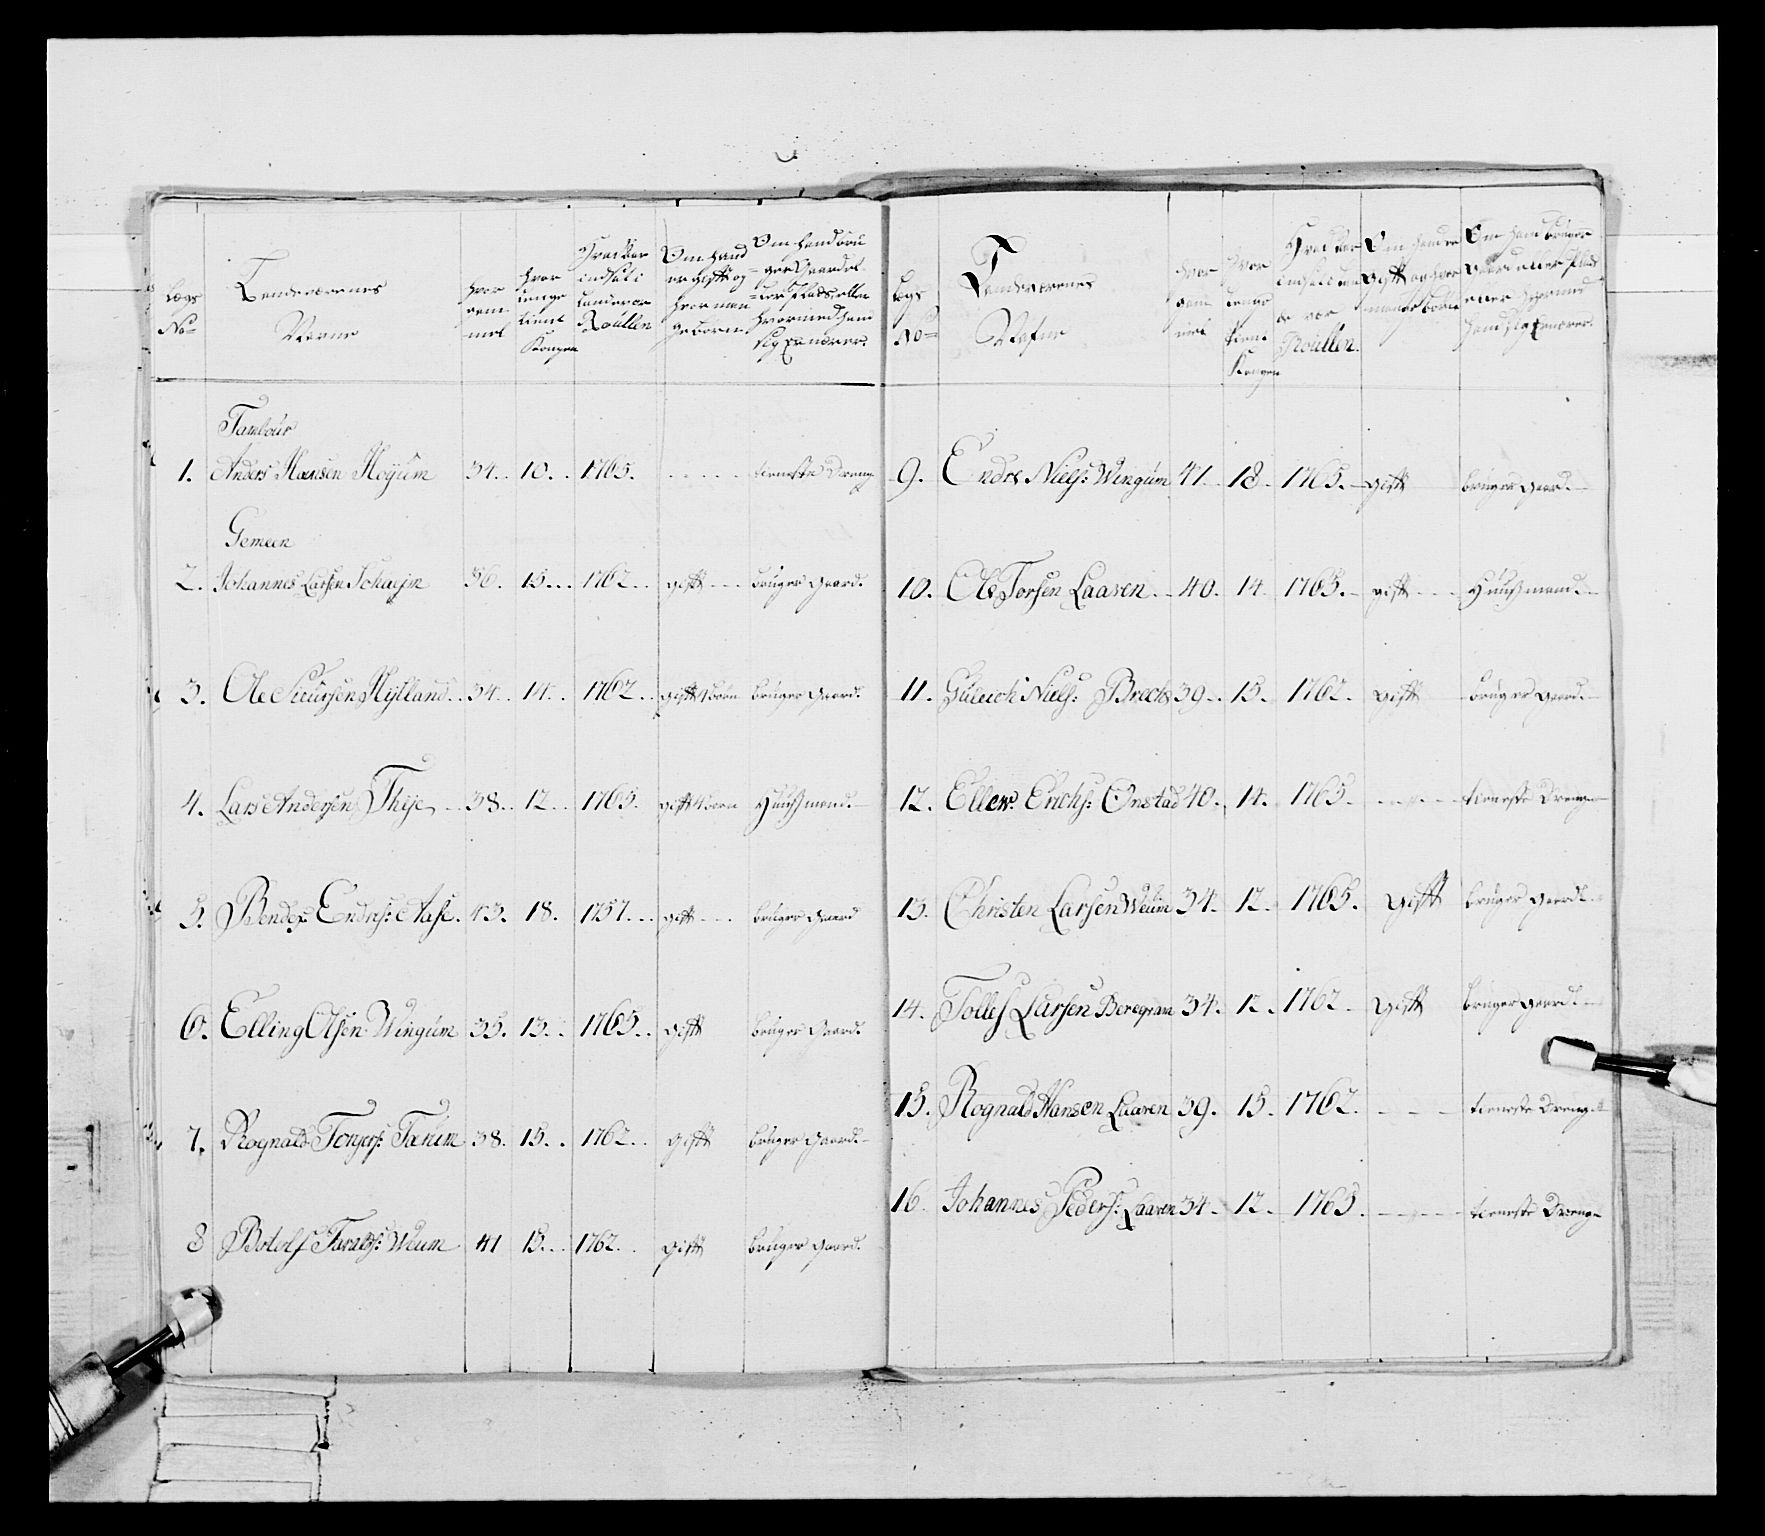 Lægs
No=
Landeværnes
Navne
hvor
gam
mel
hvor
lenge
tient
Kongen
Hvad Aar
indsat i
Landeværs
Roullen
Om hand
er gift og
hvor man
ge børn
Om hand bru
ger Gaard el
ler Plads eller
hvormed hand
sig Ernærer.
Tambour
1. Anders Hansen Høyum 34. 10. 1765. - - - - tieneste Dreng
Gemeen
2. Johannes Larsen Schaejm 36. 15. 1762. gift bruger Gaard.
3. Ole Siursen Hylland 34. 14. 1762. gift 4 børn bruger Gaard.
4. Lars Andersen Thije 38. 12. 1765. gift 4 børn Huusmand.
5. Bendix Endres: Aase. 43. 18. 1757. gift bruger Gaard
6. Elling Olsen Wingum 35. 13. 1765. gift bruger Gaard.
7. Rognald Tanum 38. 15. 1762. gift bruger Gaard.
8 Botolf Weum 41 15. 1762. gift bruger Gaard.
Lægs
No=
Landeværnes
Nafne
hvor
gam
mel
hvor
lenge
tient
Kongen
Hvad Aar
Roullen.
Om hand er
gift og hvor
mange børn
Om hand bruger
Gaard eller Plads
eller hvormed
hand sig Ernærer.
9. Endre Niels: Wingum 41. 18. 1765. gift bruger Gaard.
10. Ole Torsen Laaven 40. 14. 1765. gift Huusmand.
11. Guleich Niels: 39. 15. 1762. gift bruger Gaard.
12. Ellew. Erichs: Onstad 40. 14. 1765. - - - - tieneste Dreng
13. Christen Larsen Weum 34. 12. 1765. gift bruger Gaard.
14. Tollef Larsen Beregram 34. 12. 1762. gift bruger Gaard.
15. Rognald Hansen Laaven 39. 15. 1762. - - - tieneste Dreng
16. Johannes Peders: Laaven 34. 12. 1765. - - - tieneste Dreng